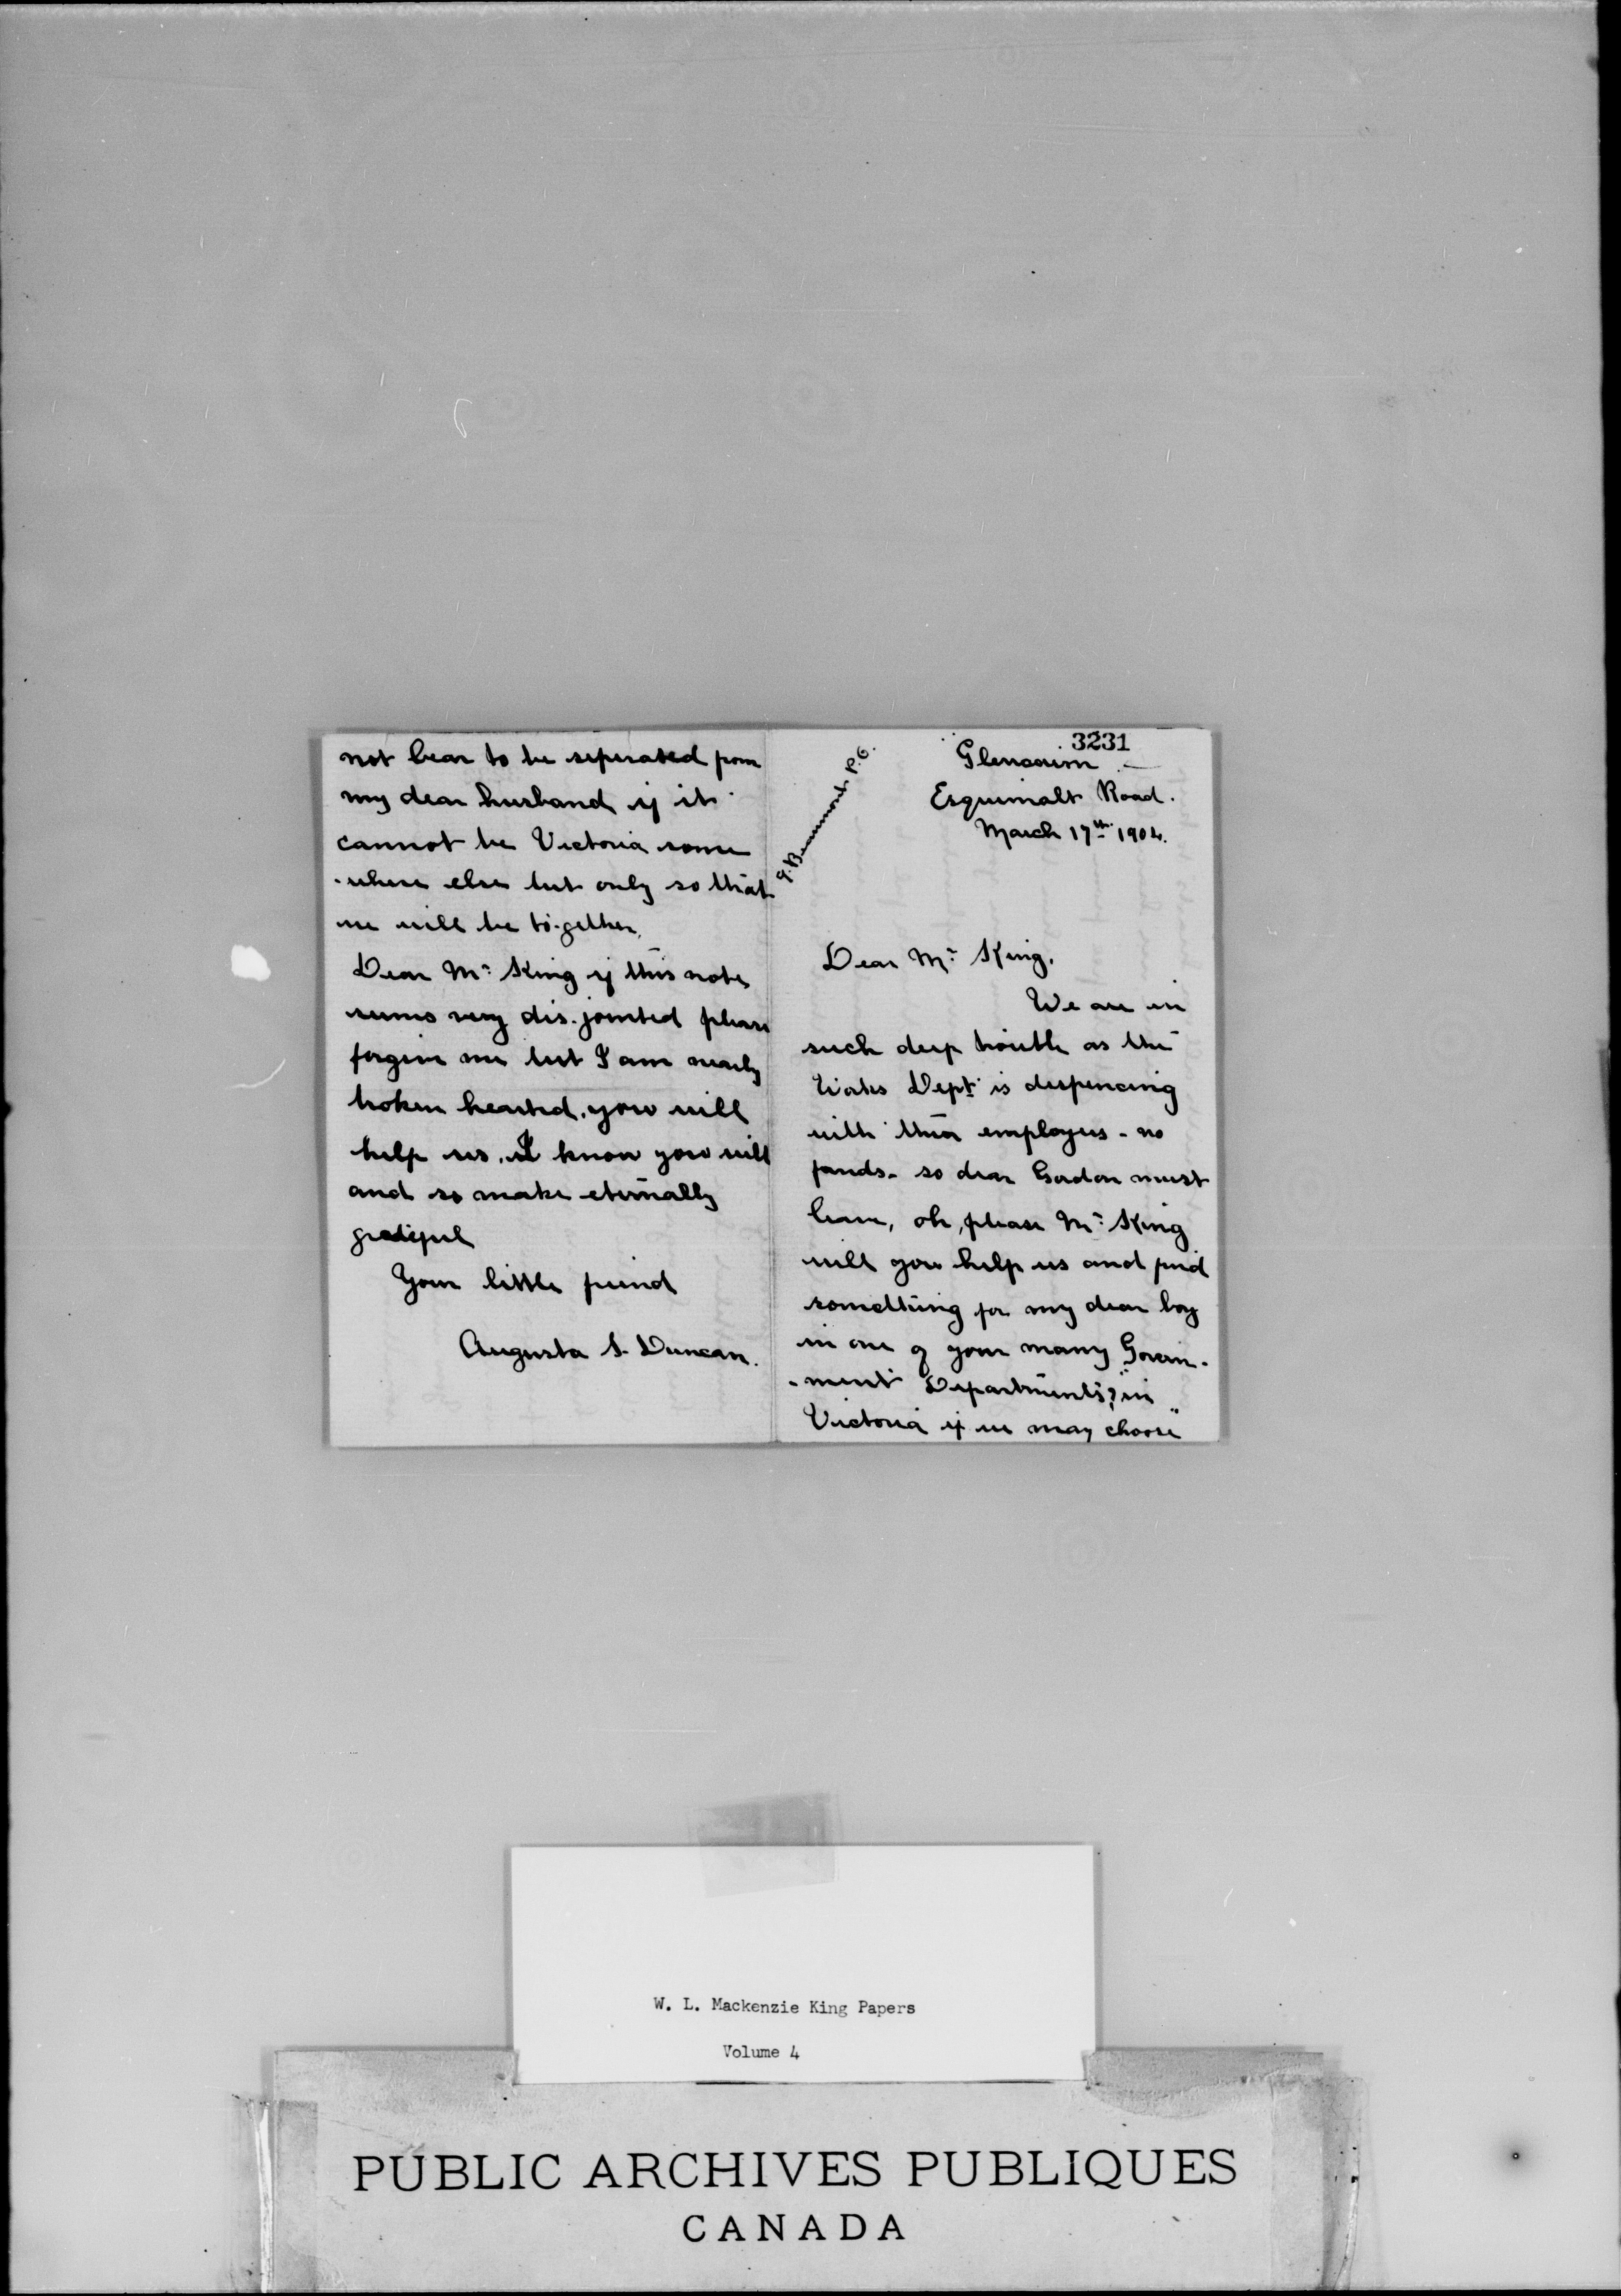 3231
Glencairn
Esquimalt Road.
March 17th 1904.
Beaumont P.O.
Dear Mr King.
We are in
such deep trouble as the
Works Dept is dispencing
with their employees - no
funds - so dear Gordon must
leave, oh, please Mr King
will you help us and find
something for my dear boy
in one of your many Govern-
-ment Departments? "in
Victoria if we may choose"
not bear to be seperated from
my dear husband if it
cannot be Victoria some
-where else but only so that
we will be to-gether.
Dear Mr King if this note
seems very dis-jointed please
forgive me but I am nearly
broken hearted, you will
help us, I know you will
and so make eternally
grateful
Your little friend
Augusta S. Duncan.
W. L. Mackenzie King Papers
Volume 4
PUBLIC ARCHIVES PUBLIQUES
CANADA